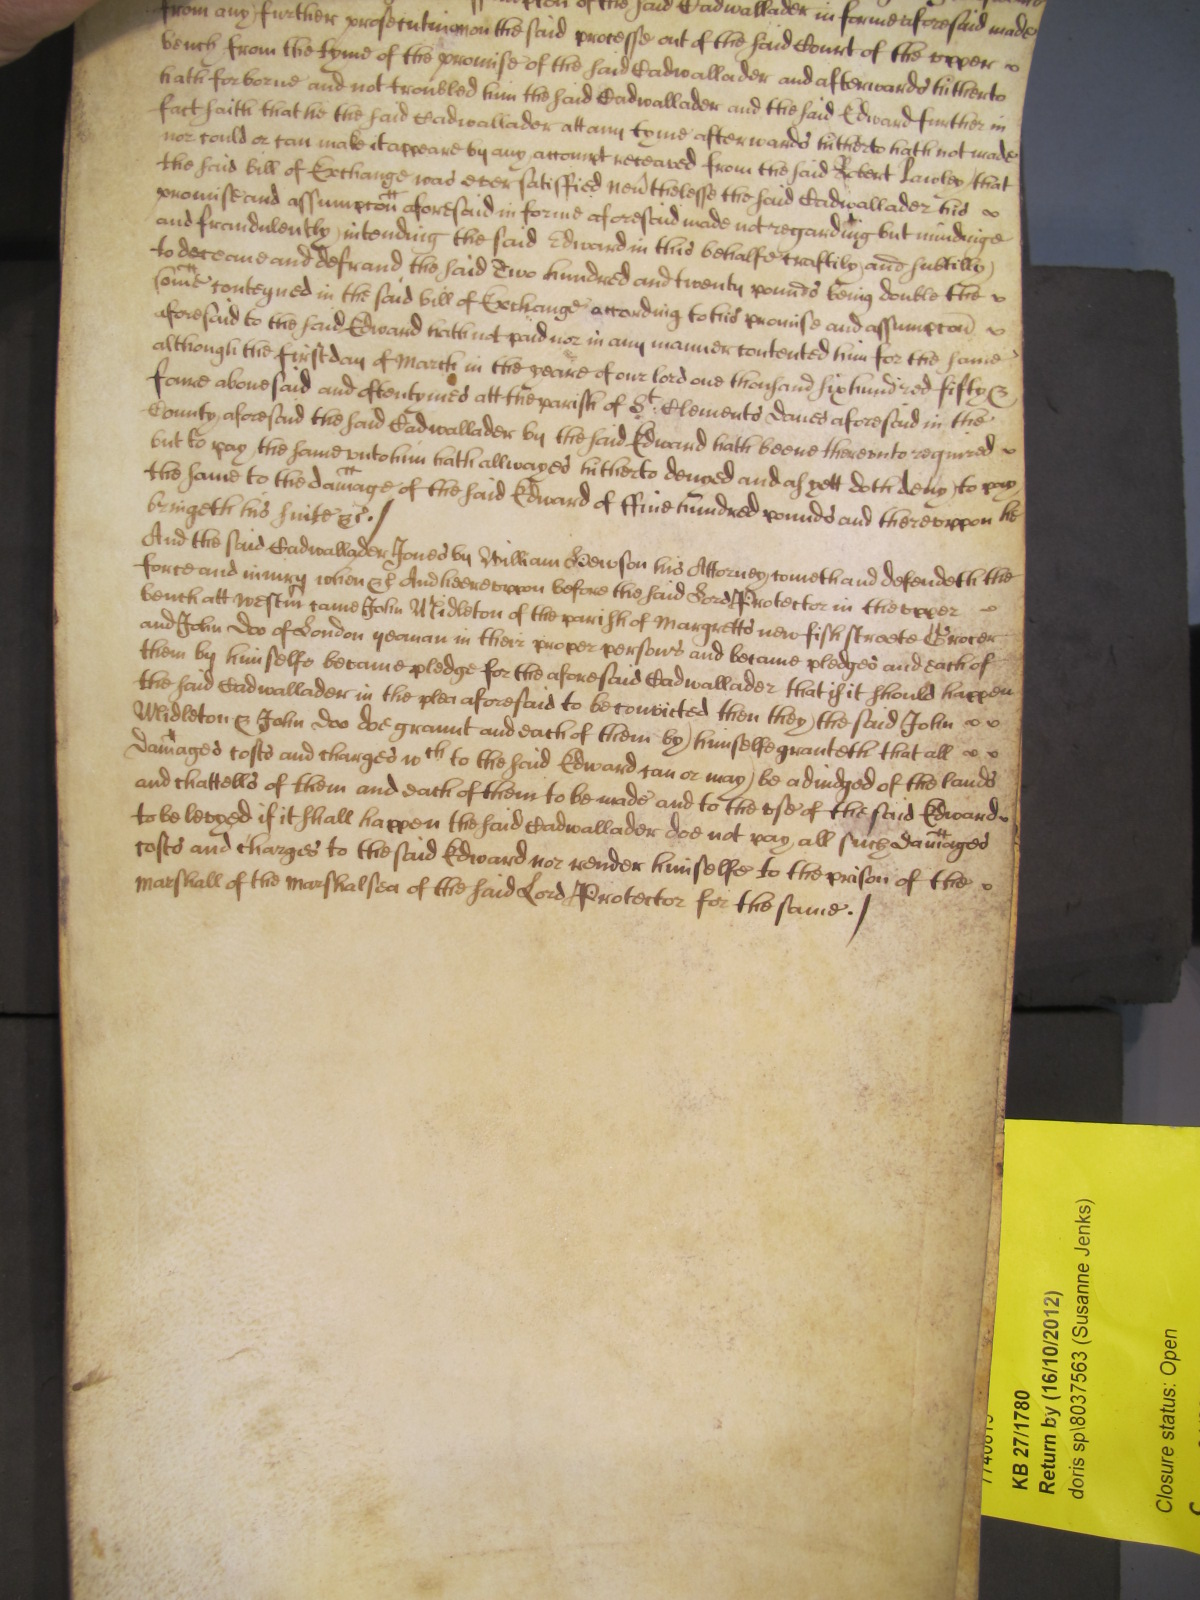 of the said Cadwallader in forme aforesaid made
from any further prosecuting on the said processe out of the said Court of the upper
bench from the tyme of the promise of the said Cadwallader and afterwards hitherto
hath forborne and not troubled him the said Cadwallader and the said Edward further in
fact saith that he the said Cadwallader att any tyme afterwards hitherto hath not made
nor could or can make it appeare by any accompt receaved from the said Robert Lawley that
the said bill of Exchange was ever satisffied nev'thelesse the said Cadwallader his
promise and assumpcon aforesaid in forme aforesaid made not regarding but mindinge
and fraudulently intending the said Edward in this behalfe craftily and subtilly
to deceave and defraud the said Two hundred and twenty pounds being double the
some conteyned in the said bill of Exchange according to his promise and assumpcon
aforesaid to the said Edward hath not paid nor in any manner contented him for the same
although the first day of March in the yeare of our lord one thousand six hundred fifty &
fowre abovesaid and oftentymes att the parish of St. Clements Danes aforesaid in the
County aforesaid the said Cadwallader by the said Edward hath beene thereunto required
but to pay the same unto him hath allwayes hitherto denyed and as yett doth deny to pay
the same to the damage of the said Edward of ffive hundred pounds and thereuppon he
bringeth his suite &c./
And the said Cadwallader Jones by William Hewson his Attorney cometh and defendeth the
force and iniury when &c And heereuppon before the said Lord Protector in the upper
bench att Westm came John Midleton of the parish of Margretts new fish streete Grocer
and John Doo of London yeoman in their proper persons and became pledges and each of
them by himselfe became pledge for the aforesaid Cadwallader that if it should happen
the said Cadwallader in the plea aforesaid to be convicted then they the said John
Midleton & John Doo doe graunt and each of them by himselfe granteth that all
damages costs and charges wch to the said Edward can or may be adiudged of the lands
and chattells of them and each of them to be made and to the use of the said Edward
to be levyed if it shall happen the said Cadwallader doe not pay all such damages
costs and charges to the said Edward nor render himselfe to the prison of the
Marshall of the Marshalsea of the said Lord Protector for the same./
KB 27/1780
Return by (16/10/2012)
doris sp\8037563 (Susanne Jenks)
Closure status: Open